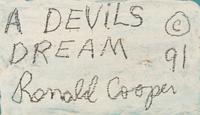 A DEVILS ©
DREAM 91
Ronald Cooper